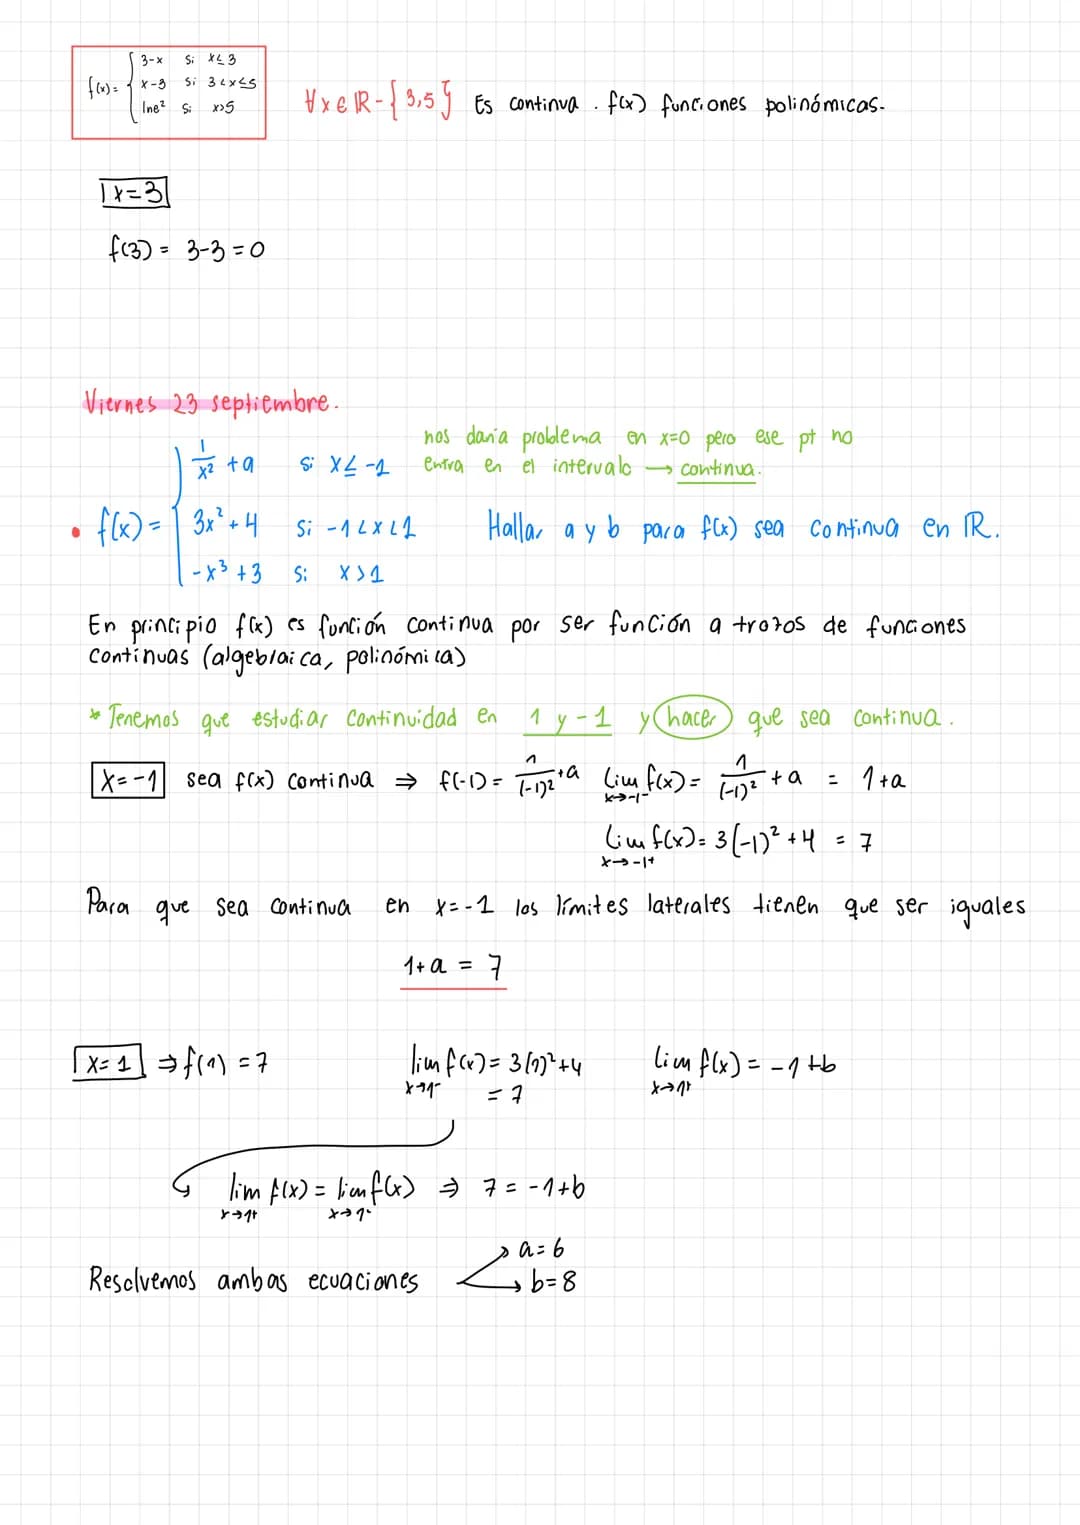 f(x) = { 3-x si x≤3
x-3 si 3<x≤5
lne² si x>5
∀x∈ℝ-{3,5} Es continua. f(x) funciones polinómicas.
x=3
f(3) = 3-3 = 0
Viernes 23 septiembre.
nos daría problema en x=0 pero ese pt no
entra en el intervalo → continua.
• f(x) = { 1/x² + a si x≤-1
3x²+4 si -1<x<1
-x³+3 si x>1
Hallar a y b para f(x) sea continua en ℝ.
En principio f(x) es función continua por ser función a trozos de funciones
continuas (algebraica, polinómica)
* Tenemos que estudiar continuidad en 1 y -1 y hacer que sea continua.
x=-1 sea f(x) continua ⇒ f(-1) = 1/(-1)² + a lim x→-1⁻ f(x) = 1/(-1)² + a = 1+a
lim x→-1⁺ f(x) = 3(-1)²+4 = 7
Para que sea continua en x=-1 los límites laterales tienen que ser iguales
1+a = 7
x=1 ⇒ f(1) = 7 lim x→1⁻ f(x) = 3(1)²+4 = 7 lim x→1⁺ f(x) = -1+b
lim x→1⁺ f(x) = lim x→1⁻ f(x) ⇒ 7 = -1+b
Resolvemos ambas ecuaciones → a=6
→ b=8